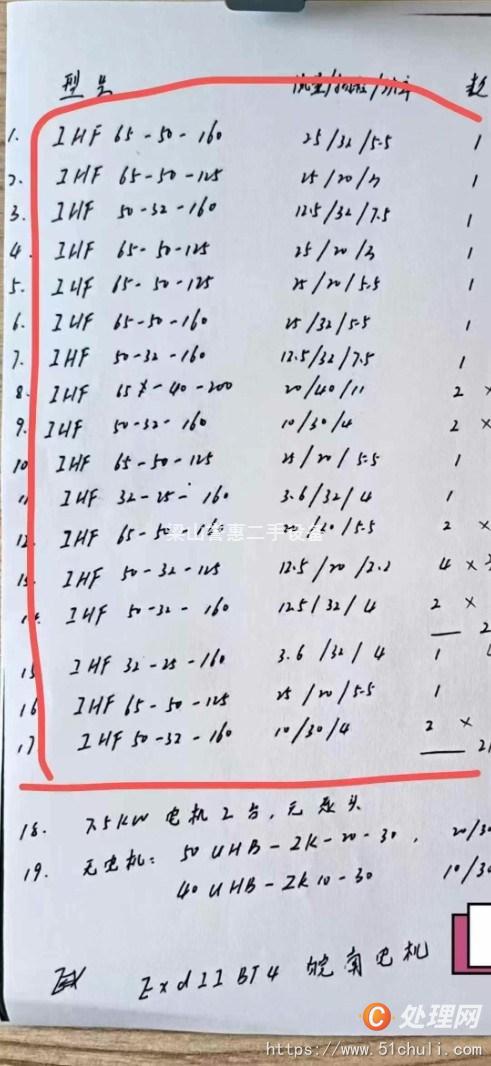 型号 流量/扬程/功率 数
1. IHF 65-50-160 25/32/5.5 1
2. IHF 65-50-125 25/20/3 1
3. IHF 50-32-160 12.5/32/7.5 1
4. IHF 65-50-125 25/20/3 1
5. IHF 65-50-125 25/20/5.5 1
6. IHF 65-50-160 25/32/5.5 1
7. IHF 50-32-160 12.5/32/7.5 1
8. IHF 65-40-200 20/40/11 2 ×
9. IHF 50-32-160 10/30/4 2 ×
10. IHF 65-50-125 25/20/5.5 1
11 IHF 32-25-160 3.6/32/4 1
12. IHF 65-50-160 20/30/5.5 2 ×
梁山誉惠二手设备
13. IHF 50-32-125 12.5/20/2.2 4 ×
14. IHF 50-32-160 12.5/32/4 2 ×
15 IHF 32-25-160 3.6/32/4 1
16 IHF 65-50-125 25/20/5.5 1
17 IHF 50-32-160 10/30/4 2 ×
18. 7.5KW 电机2台,无泵头
19. 无电机: 50 UHB-ZK-20-30, 20/30
40 UHB-ZK10-30 10/30
ExdIIBT4 皖南电机
C 处理网
https://www.51chuli.com